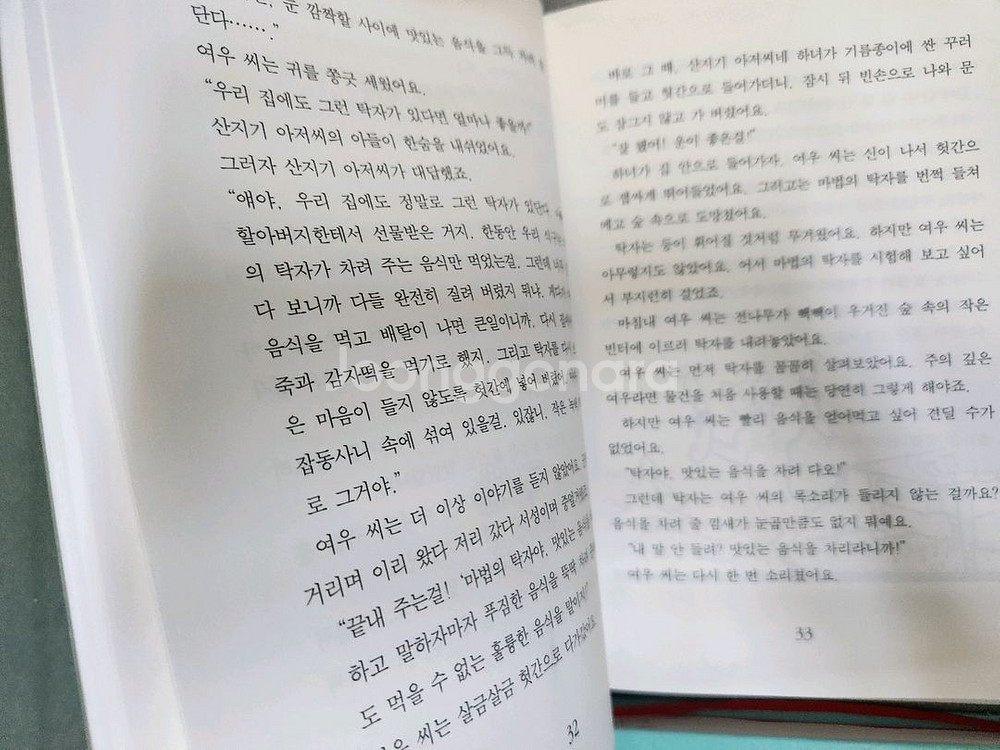 눈 깜짝할 사이에 맛있는 음식을 그득
단다……."
여우 씨는 귀를 쫑긋 세웠어요.
"우리 집에도 그런 탁자가 있다면 얼마나 좋을까!"
산지기 아저씨의 아들이 한숨을 내쉬었어요.
그러자 산지기 아저씨가 대답했죠.
"얘야, 우리 집에도 정말로 그런 탁자가 있단다.
할아버지한테서 선물받은 거지. 한동안 우리 식구는
의 탁자가 차려 주는 음식만 먹었는걸. 그런데
다 보니까 다들 완전히 질려 버렸지 뭐냐. 게다가
음식을 먹고 배탈이 나면 큰일이니까, 다시
죽과 감자떡을 먹기로 했지. 그리고 탁자를 다시
은 마음이 들지 않도록 헛간에 넣어 버렸어.
잡동사니 속에 섞여 있을걸. 있잖니, 작은
로 그거야."
여우 씨는 더 이상 이야기를 듣지 않았어요.
거리며 이리 왔다 저리 갔다 서성이며 중얼거렸죠.
"끝내 주는걸! '마법의 탁자야, 맛있는 음식을
하고 말하자마자 푸짐한 음식을 뚝딱 차려
도 먹을 수 없는 훌륭한 음식을 말이지!"
씨는 살금살금 헛간으로 다가갔어요.
32
바로 그 때, 산지기 아저씨네 하녀가 기름종이에 싼 꾸러
미를 들고 헛간으로 들어가더니, 잠시 뒤 빈손으로 나와 문
도 잠그지 않고 가 버렸어요.
"잘 됐어! 운이 좋은걸!"
하녀가 집 안으로 들어가자, 여우 씨는 신이 나서 헛간으
로 잽싸게 뛰어들었어요. 그러고는 마법의 탁자를 번쩍 들쳐
메고 숲 속으로 도망쳤어요.
탁자는 등이 휘어질 것처럼 무거웠어요. 하지만 여우 씨는
아무렇지도 않았어요. 어서 마법의 탁자를 시험해 보고 싶어
서 부지런히 걸었죠.
마침내 여우 씨는 전나무가 빽빽이 우거진 숲 속의 작은
빈터에 이르러 탁자를 내려놓았어요.
여우 씨는 먼저 탁자를 꼼꼼히 살펴보았어요. 주의 깊은
여우라면 물건을 처음 사용할 때는 당연히 그렇게 해야죠.
하지만 여우 씨는 빨리 음식을 얻어먹고 싶어 견딜 수가
없었어요.
"탁자야, 맛있는 음식을 차려 다오!"
그런데 탁자는 여우 씨의 목소리가 들리지 않는 걸까요?
음식을 차려 줄 낌새가 눈곱만큼도 없지 뭐예요.
"내 말 안 들려? 맛있는 음식을 차리라니까!"
여우 씨는 다시 한 번 소리쳤어요.
33
joonggonara